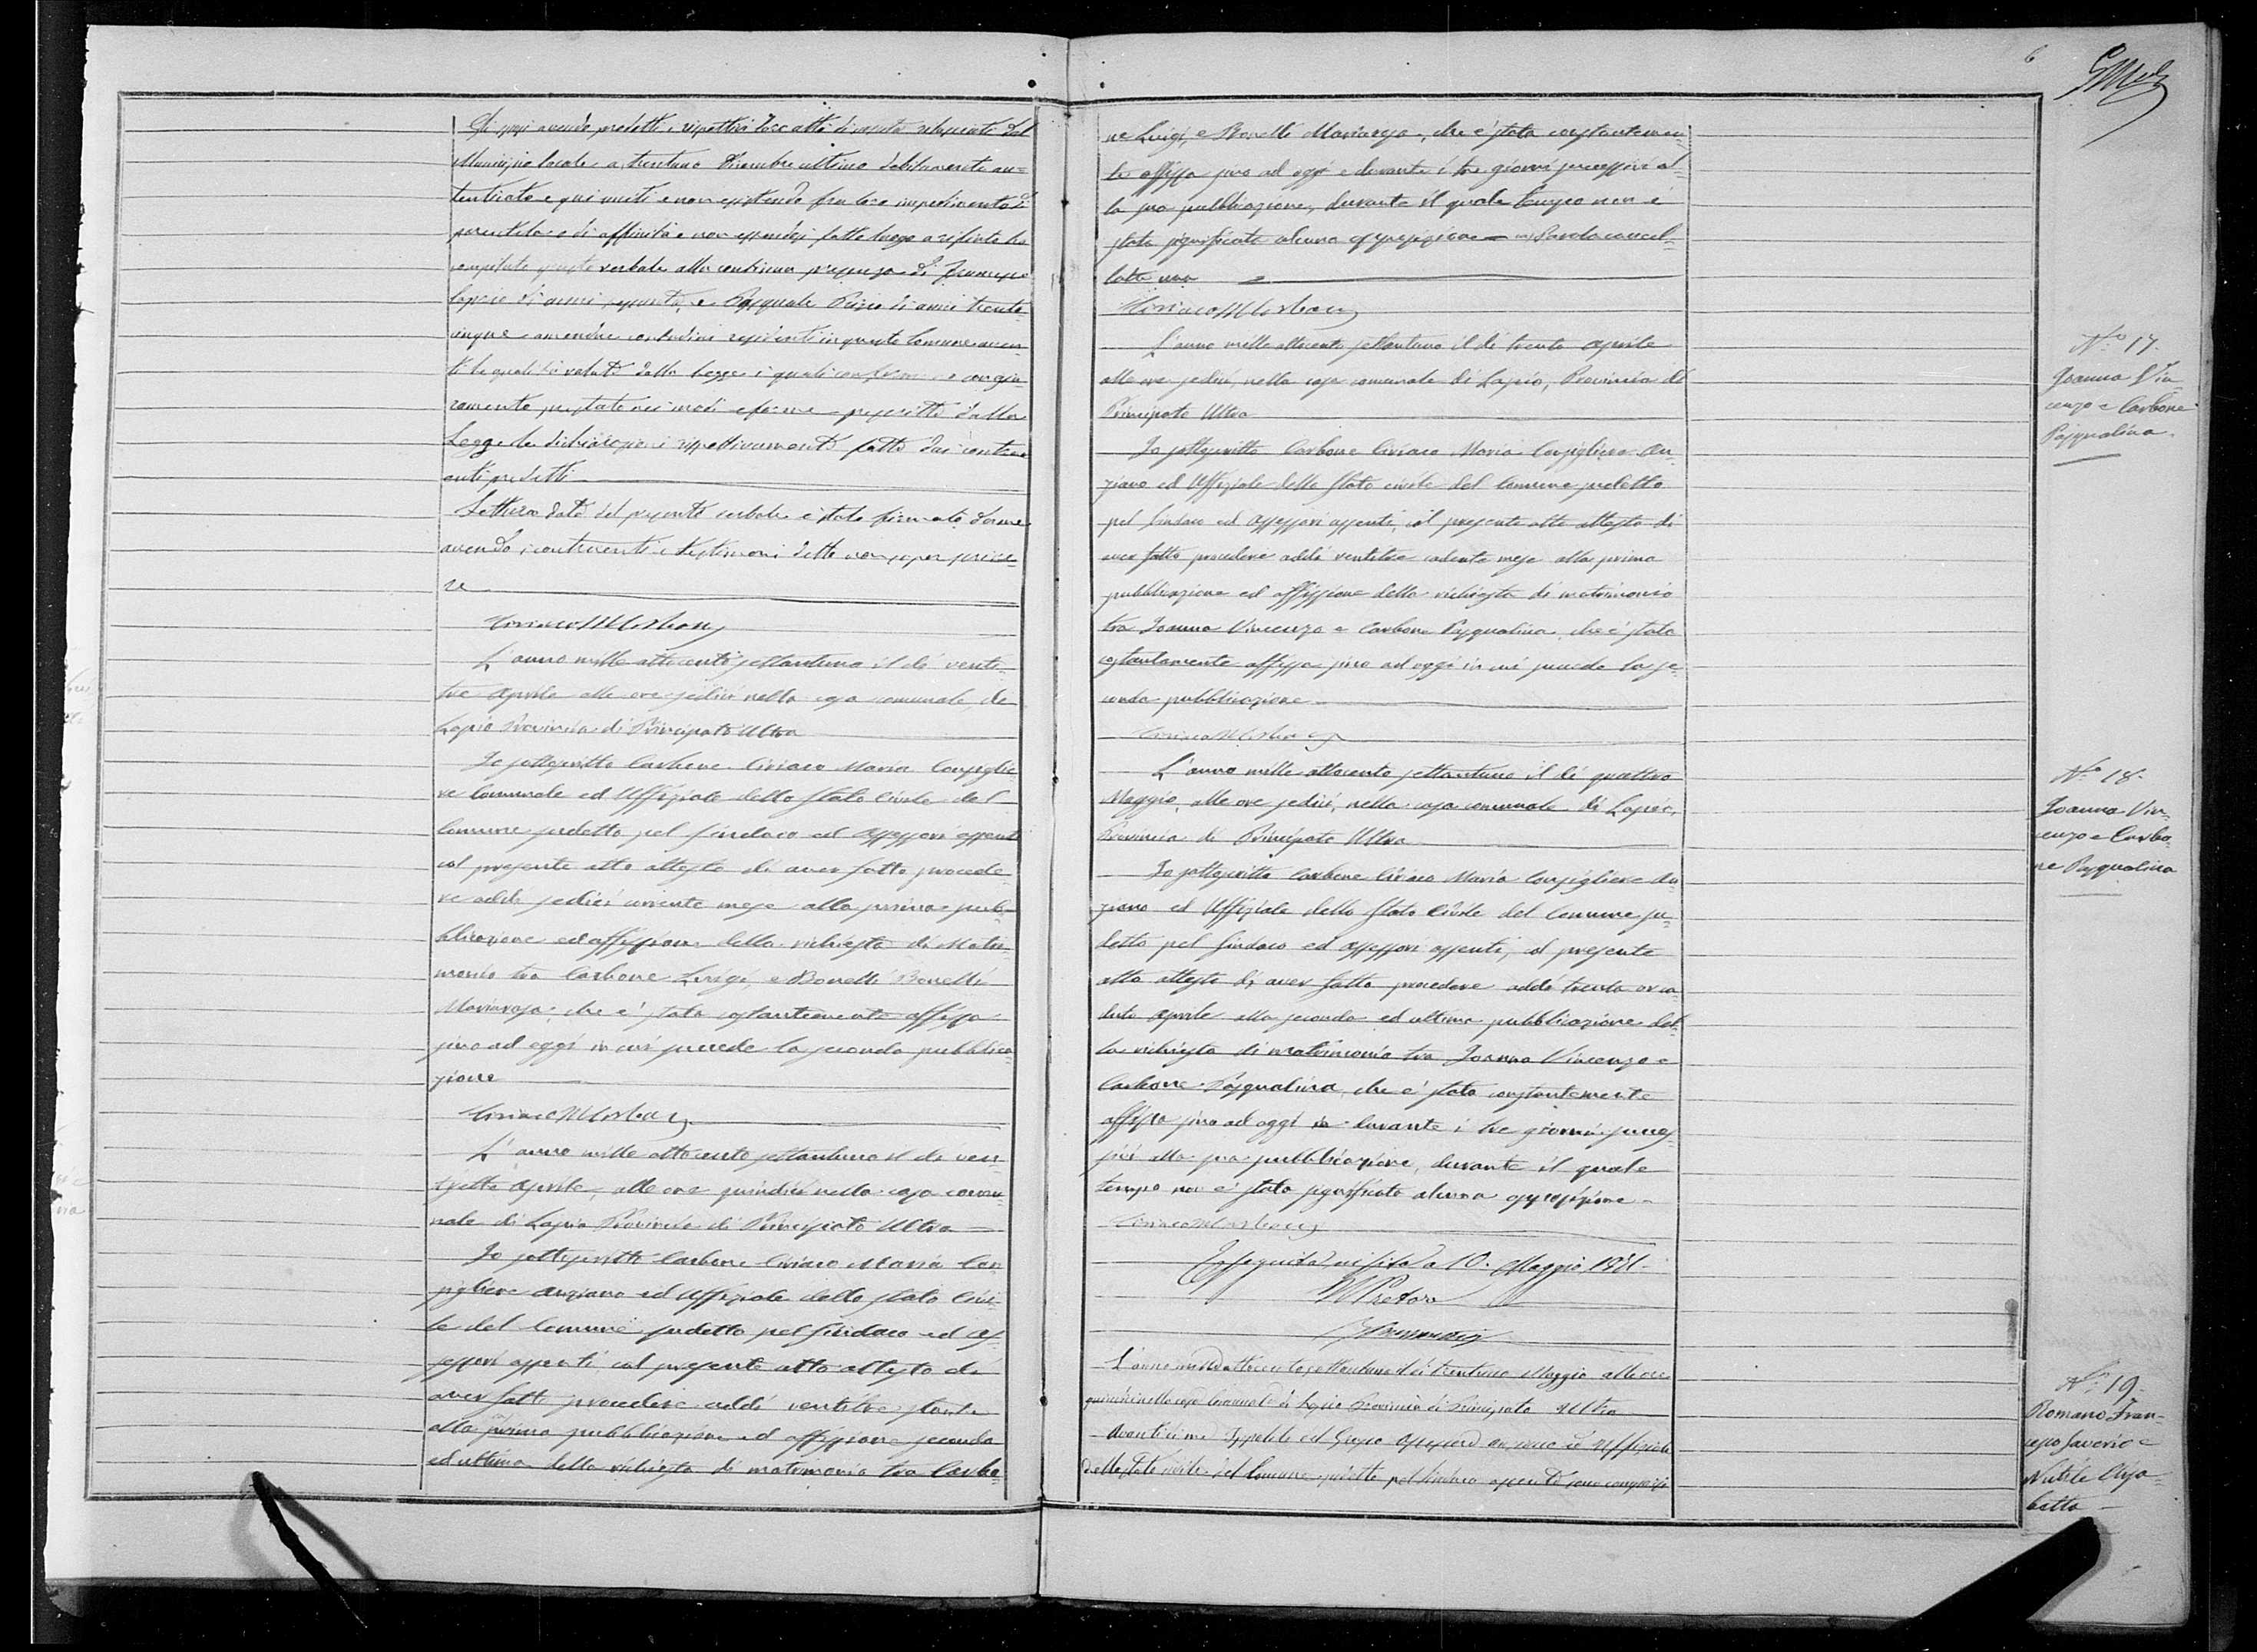 Di essi avendo prodotti i rispettivi loro atti di nascita rilasciati dal
Municipio locale a trentuno Dicembre ultimo debitamente au=
tenticato e qui uniti e non esistendo fra loro impedimento di
parentela o di affinità e non essendosi fatto luogo a rifiuto ho
compilato questo verbale alla continua presenza di Francesco
di anni sessanta, e Pasquale di anni trenta
cinque amendue contadini residenti in questo Comune aven
ti le qualità volute dalla Legge i quali confermano con giu
ramento prestato nei modi e forme prescritte dalla
Legge le dichiarazioni rispettivamente fatte dai contra
enti predetti
Lettura data del presente verbale è stato firmato da me
avendo i contraenti e testimoni detto non saper scrive
re
Ciriaco M Carbone
L'anno mille ottocento settantuno il dì venti
tre Aprile alle ore sedici nella casa comunale di
Lapio Provincia di Principato Ultra
Io sottoscritto Carbone Ciriaco Maria Consiglie
re Comunale ed Uffiziale dello Stato Civile del
Comune sudetto pel Sindaco ed Assessori assenti
col presente atto attesto di aver fatto procede
re addì sedici corrente mese alla prima pub
blicazione ed affissione della richiesta di Matri
monio tra Carbone Luigi, e Bonelli Bonelli
Mariarosa, che è stata costantemente affissa
sino ad oggi in cui procede la seconda pubblica
zione
Ciriaco M Carbone
L'anno mille ottocento settantuno il dì ven
tisette Aprile, alle ore quindici nella casa comu
nale di Lapio Provincia di Principato Ultra
Io sottoscritto Carbone Ciriaco Maria Con
sigliere Anziano ed Uffiziale dello Stato Civi
le del Comune sudetto pel Sindaco ed As
sessori assenti col presente atto attesto di
aver fatto procedere addì ventitre stante
alla prima pubblicazione ed affissione seconda
ed ultima della richiesta di matrimonio tra Carbo
6
ne Luigi, e Bonelli Mariarosa, che è stata costantemen
te affissa sino ad oggi e durante i tre giorni successivi al=
la sua pubblicazione, durante il quale tempo non è
stata significata alcuna opposizione — Parola cancel=
lata una
Ciriaco M Carbone
L'anno mille ottocento settantuno il dì trenta Aprile
alle ore sedici, nella casa comunale di Lapio, Provincia di
Principato Ultra
Io sottoscritto Carbone Ciriaco Maria Consigliere An=
ziano ed Uffiziale dello Stato civile del Comune sudetto
pel Sindaco ed Assessori assenti, col presente atto attesto di
aver fatto procedere addì ventitre cadente mese alla prima
pubblicazione ed affissione della richiesta di matrimonio
tra Joanna Vincenzo e Carbone Pasqualina, che è stata
costantemente affissa sino ad oggi in cui procede la se=
conda pubblicazione
Ciriaco M Carbone
L'anno mille ottocento settantuno il dì quattro
Maggio, alle ore sedici, nella casa comunale di Lapio,
Provincia di Principato Ultra
Io sottoscritto Carbone Ciriaco Maria Consigliere An
ziano ed Uffiziale dello Stato Civile del Comune su=
detto pel Sindaco ed Assessori assenti, col presente
atto attesto di aver fatto procedere addì trenta or ca
duto Aprile alla seconda ed ultima pubblicazione del=
la richiesta di matrimonio tra Joanna Vincenzo e
Carbone Pasqualina, che è stata costantemente
affissa sino ad oggi e durante i tre giorni succes=
sivi alla sua pubblicazione, durante il quale
tempo non è stata significata alcuna opposizione
Ciriaco M Carbone
Eseguita la visita a 10. Maggio 1871.
Il Pretore
L'anno mille ottocento settantuno il dì trentuno Maggio alle ore
quindici nella casa Comunale di Lapio Provincia di Principato Ultra
Avanti di me Ippolito del Grosso Assessore anziano ed Uffiziale
dello Stato civile del Comune sudetto pel Sindaco assente sono comparsi
Nº 17.
Joanna Vin=
cenzo e Carbone
Pasqualina.
Nº 18.
Joanna Vin=
cenzo e Carbo=
ne Pasqualina
Nº 19.
Romano Fran=
cesco Saverio e
Nutile Elisa=
betta